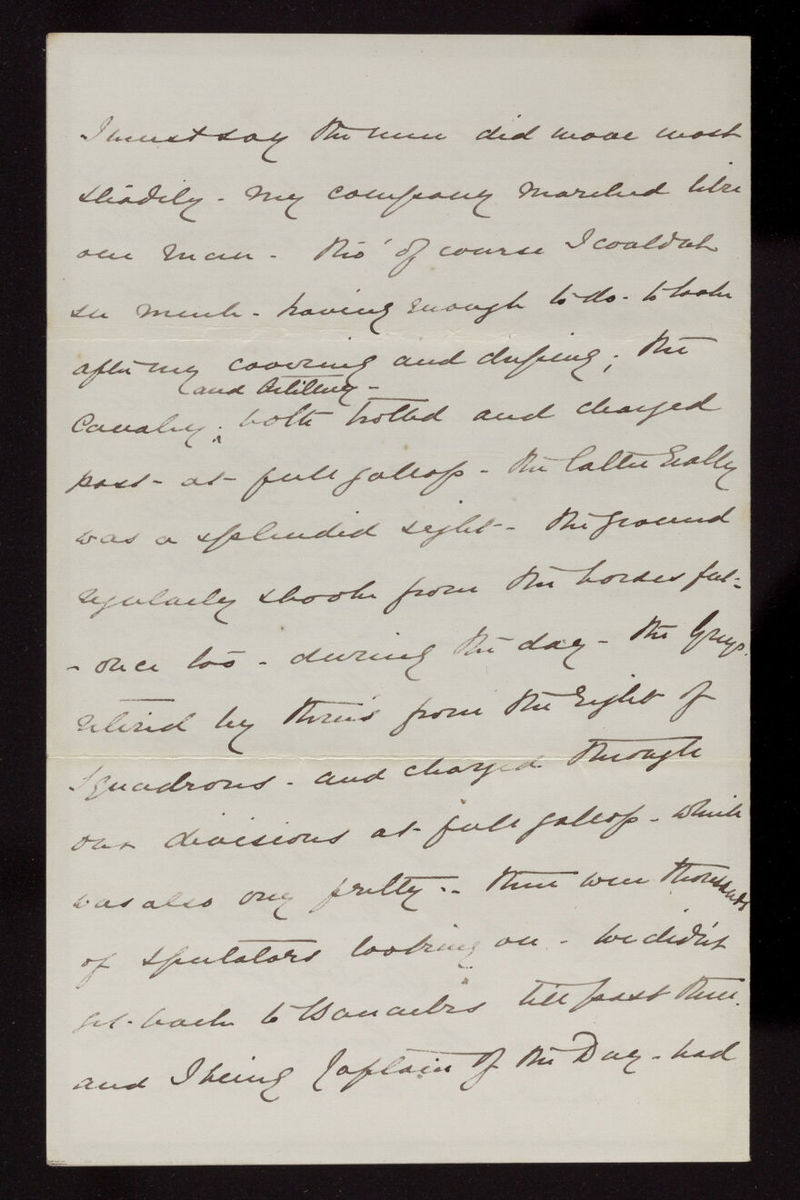 I must say the men did move most
steadily - my company marched like
one man - tho' of course I couldn't
see much - having enough to do - to look
after my covering and dressing; the
and Artillery -
Cavalry; both trotted and charged
past - at full gallop - the latter really
was a splendid sight - the ground
regularly shook from the horses feet -
- once too - during the day - the Greys
retired by threes from the right of
Squadrons - and charged through
our divisions at full gallop - which
was also very pretty - there were thousands
of spectators looking on - we didn't
get back to Barracks till past three.
and I being Captain of the Day - had